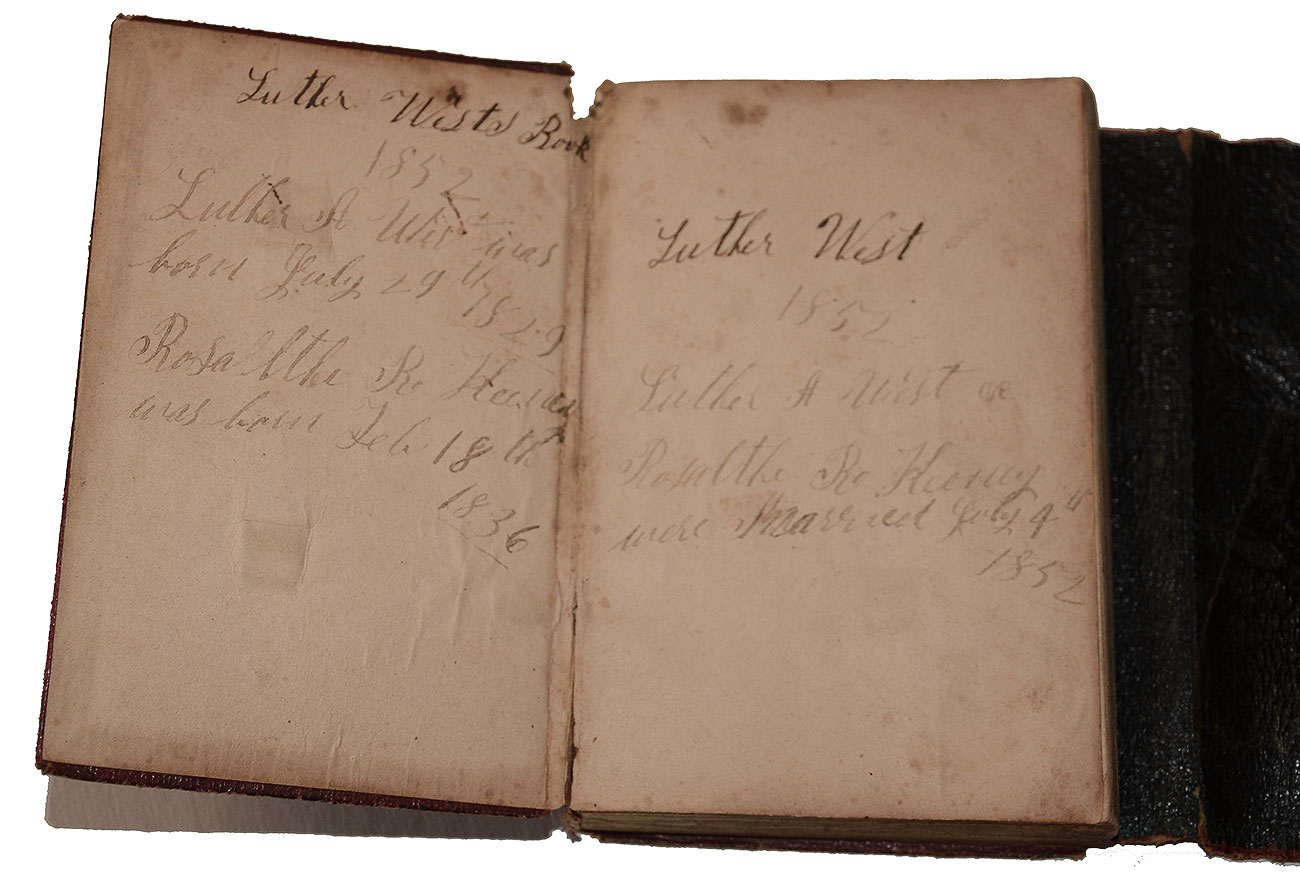 Luther Wests Book
1852
Luther A West was
born July 29th
1829
Rosaltha R. Keeney
was born Feb. 18th
1836
Luther West
1852
Luther A West
Rosaltha R. Keeney
were Married July 4th
1852